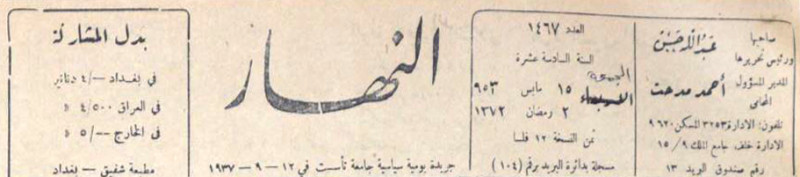 صاحبها
ورئيس تحريرها
عبدالله حسن
المدير المسؤول
المحامي
أحمد مدحت
تلفون: الادارة ٣٢٥٣ المسكن ٩٦٢٠
الادارة خلف جامع الملك ٩ / ١٥
رقم صندوق البريد ١٣
العدد ١٤٦٧
السنة السادسة عشرة
الجمعة
الاربعاء
١٥ مايس ٩٥٣
٢ رمضان ١٣٧٢
ثمن النسخة ١٢ فلسا
مسجلة بدائرة البريد برقم (١٠٤)
النهار
جريدة يومية سياسية جامعة تأسست في ١٢ - ٩ - ١٩٣٧
بدل المشاركة
في بغداد -/٤ دنانير
في العراق ٤/٥٠٠ »
في الخارج --/٥ »
مطبعة شفيق - بغداد